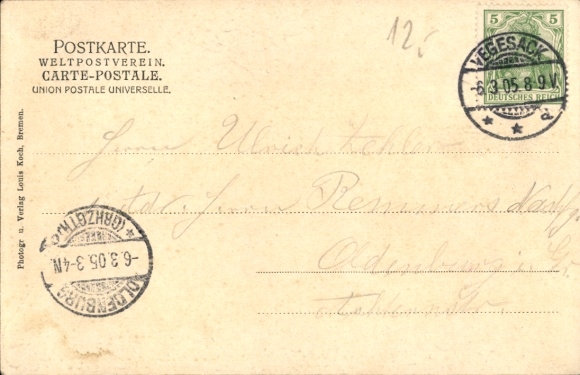 12.
POSTKARTE.
WELTPOSTVEREIN.
CARTE-POSTALE.
UNION POSTALE UNIVERSELLE.
5 5
DEUTSCHES REICH
VEGESACK
-6.3.05.8-9V.
* * d
Herrn Ulrich
Herrn Remmers Nachf.
Oldenburg i. Gr.
Photogr u. Verlag Louis Koch, Bremen.
OLDENBURG
-6.3.05.3-4N.
*(GRHZGTH.)